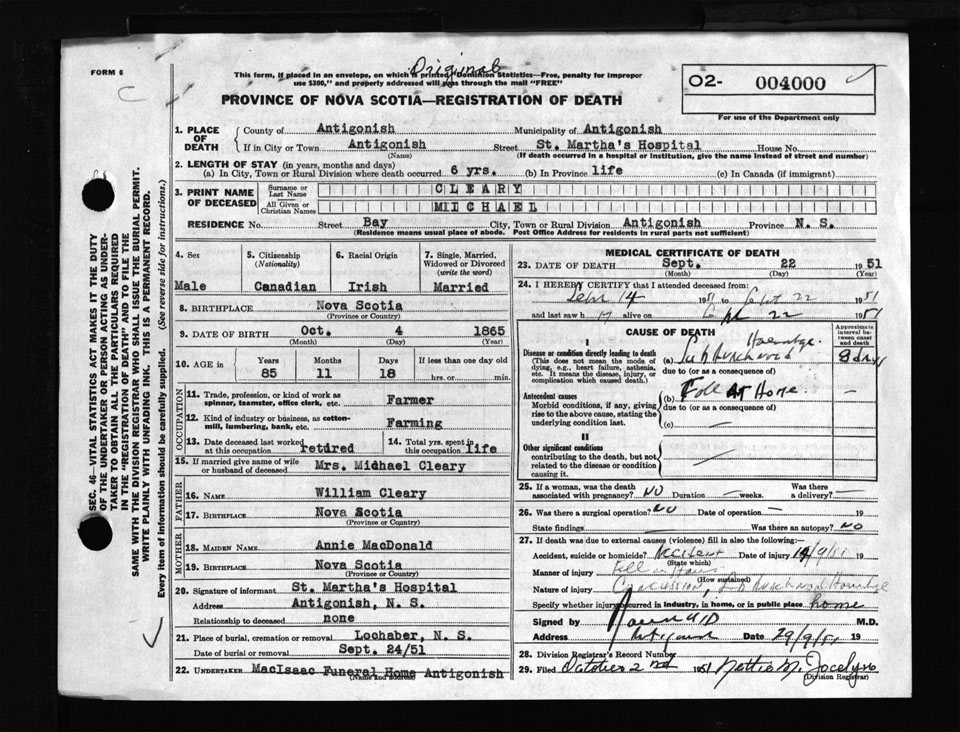 Original
FORM 6
This form, if placed in an envelope, on which is printed "Dominion Statistics—Free, penalty for improper
use $300," and properly addressed will pass through the mail "FREE"
02- 004000
For use of the Department only
PROVINCE OF NOVA SCOTIA—REGISTRATION OF DEATH
SEC. 46—VITAL STATISTICS ACT MAKES IT THE DUTY
OF THE UNDERTAKER OR PERSON ACTING AS UNDER-
TAKER TO OBTAIN ALL THE PARTICULARS REQUIRED
IN THE "REGISTRATION OF DEATH" AND TO FILE THE
SAME WITH THE DIVISION REGISTRAR WHO SHALL ISSUE THE BURIAL PERMIT.
WRITE PLAINLY WITH UNFADING INK. THIS IS A PERMANENT RECORD.
Every item of information should be carefully supplied. (See reverse side for instructions.)
1. PLACE OF DEATH County of Antigonish Municipality of Antigonish
If in City or Town Antigonish Street St. Martha's Hospital House No.
(Name) (If death occurred in a hospital or institution, give the name instead of street and number)
2. LENGTH OF STAY (in years, months and days)
(a) In City, Town or Rural Division where death occurred 6 yrs. (b) In Province life (c) In Canada (if immigrant)
3. PRINT NAME OF DECEASED Surname or Last Name CLEARY
All Given or Christian Names MICHAEL
RESIDENCE No. Street Bay City, Town or Rural Division Antigonish Province N. S.
(Residence means usual place of abode. Post Office Address for residents in rural parts not sufficient)
4. Sex 5. Citizenship (Nationality) 6. Racial Origin 7. Single, Married, Widowed or Divorced (write the word)
Male Canadian Irish Married
8. BIRTHPLACE Nova Scotia
(Province or Country)
9. DATE OF BIRTH Oct. 4 1865
(Month) (Day) (Year)
10. AGE in Years Months Days If less than one day old
85 11 18 hrs. or min.
OCCUPATION
11. Trade, profession, or kind of work as
spinner, teamster, office clerk, etc. Farmer
12. Kind of industry or business, as cotton-
mill, lumbering, bank, etc. Farming
13. Date deceased last worked at this occupation retired 14. Total yrs. spent in this occupation life
15. If married give name of wife
or husband of deceased Mrs. Michael Cleary
FATHER
16. NAME William Cleary
17. BIRTHPLACE Nova Scotia
(Province or Country)
MOTHER
18. MAIDEN NAME Annie MacDonald
19. BIRTHPLACE Nova Scotia
(Province or Country)
20. Signature of informant St. Martha's Hospital
Address Antigonish, N. S.
Relationship to deceased none
21. Place of burial, cremation or removal Lochaber, N. S.
Date of burial or removal Sept. 24/51
22. UNDERTAKER MacIsaac Funeral Home Antigonish
(Name and Address)
MEDICAL CERTIFICATE OF DEATH
23. DATE OF DEATH Sept. 22 1951
(Month) (Day) (Year)
24. I HEREBY CERTIFY that I attended deceased from:
Sept 14 1951 to Sept 22 1951
and last saw h m alive on Sept 22 1951
CAUSE OF DEATH
Approximate interval between onset and death
I
Disease or condition directly leading to death (a) Haemhge. 8 days
(This does not mean the mode of
dying, e.g., heart failure, asthenia,
etc. It means the disease, injury, or
complication which caused death.)
due to (or as a consequence of)
Antecedent causes (b) Fall at Home. —
Morbid conditions, if any, giving
rise to the above cause, stating the
underlying condition last.
due to (or as a consequence of)
(c) —
II
Other significant conditions
contributing to the death, but not
related to the disease or condition
causing it.
25. If a woman, was the death
associated with pregnancy? NO Duration — weeks. Was there a delivery? —
26. Was there a surgical operation? NO Date of operation — 19
State findings — Was there an autopsy? NO
27. If death was due to external causes (violence) fill in also the following:—
Accident, suicide or homicide? Accident Date of injury 14/9/51 19
(State which)
Manner of injury Fell in Home
(How sustained)
Nature of injury Concussion,
Specify whether injury occurred in industry, in home, or in public place home
Signed by M.D.
Address Antigonish Date 29/9/51 19
28. Division Registrar's Record Number
29. Filed October 2nd 1951 Nettie M. Jocelyn
(Division Registrar)